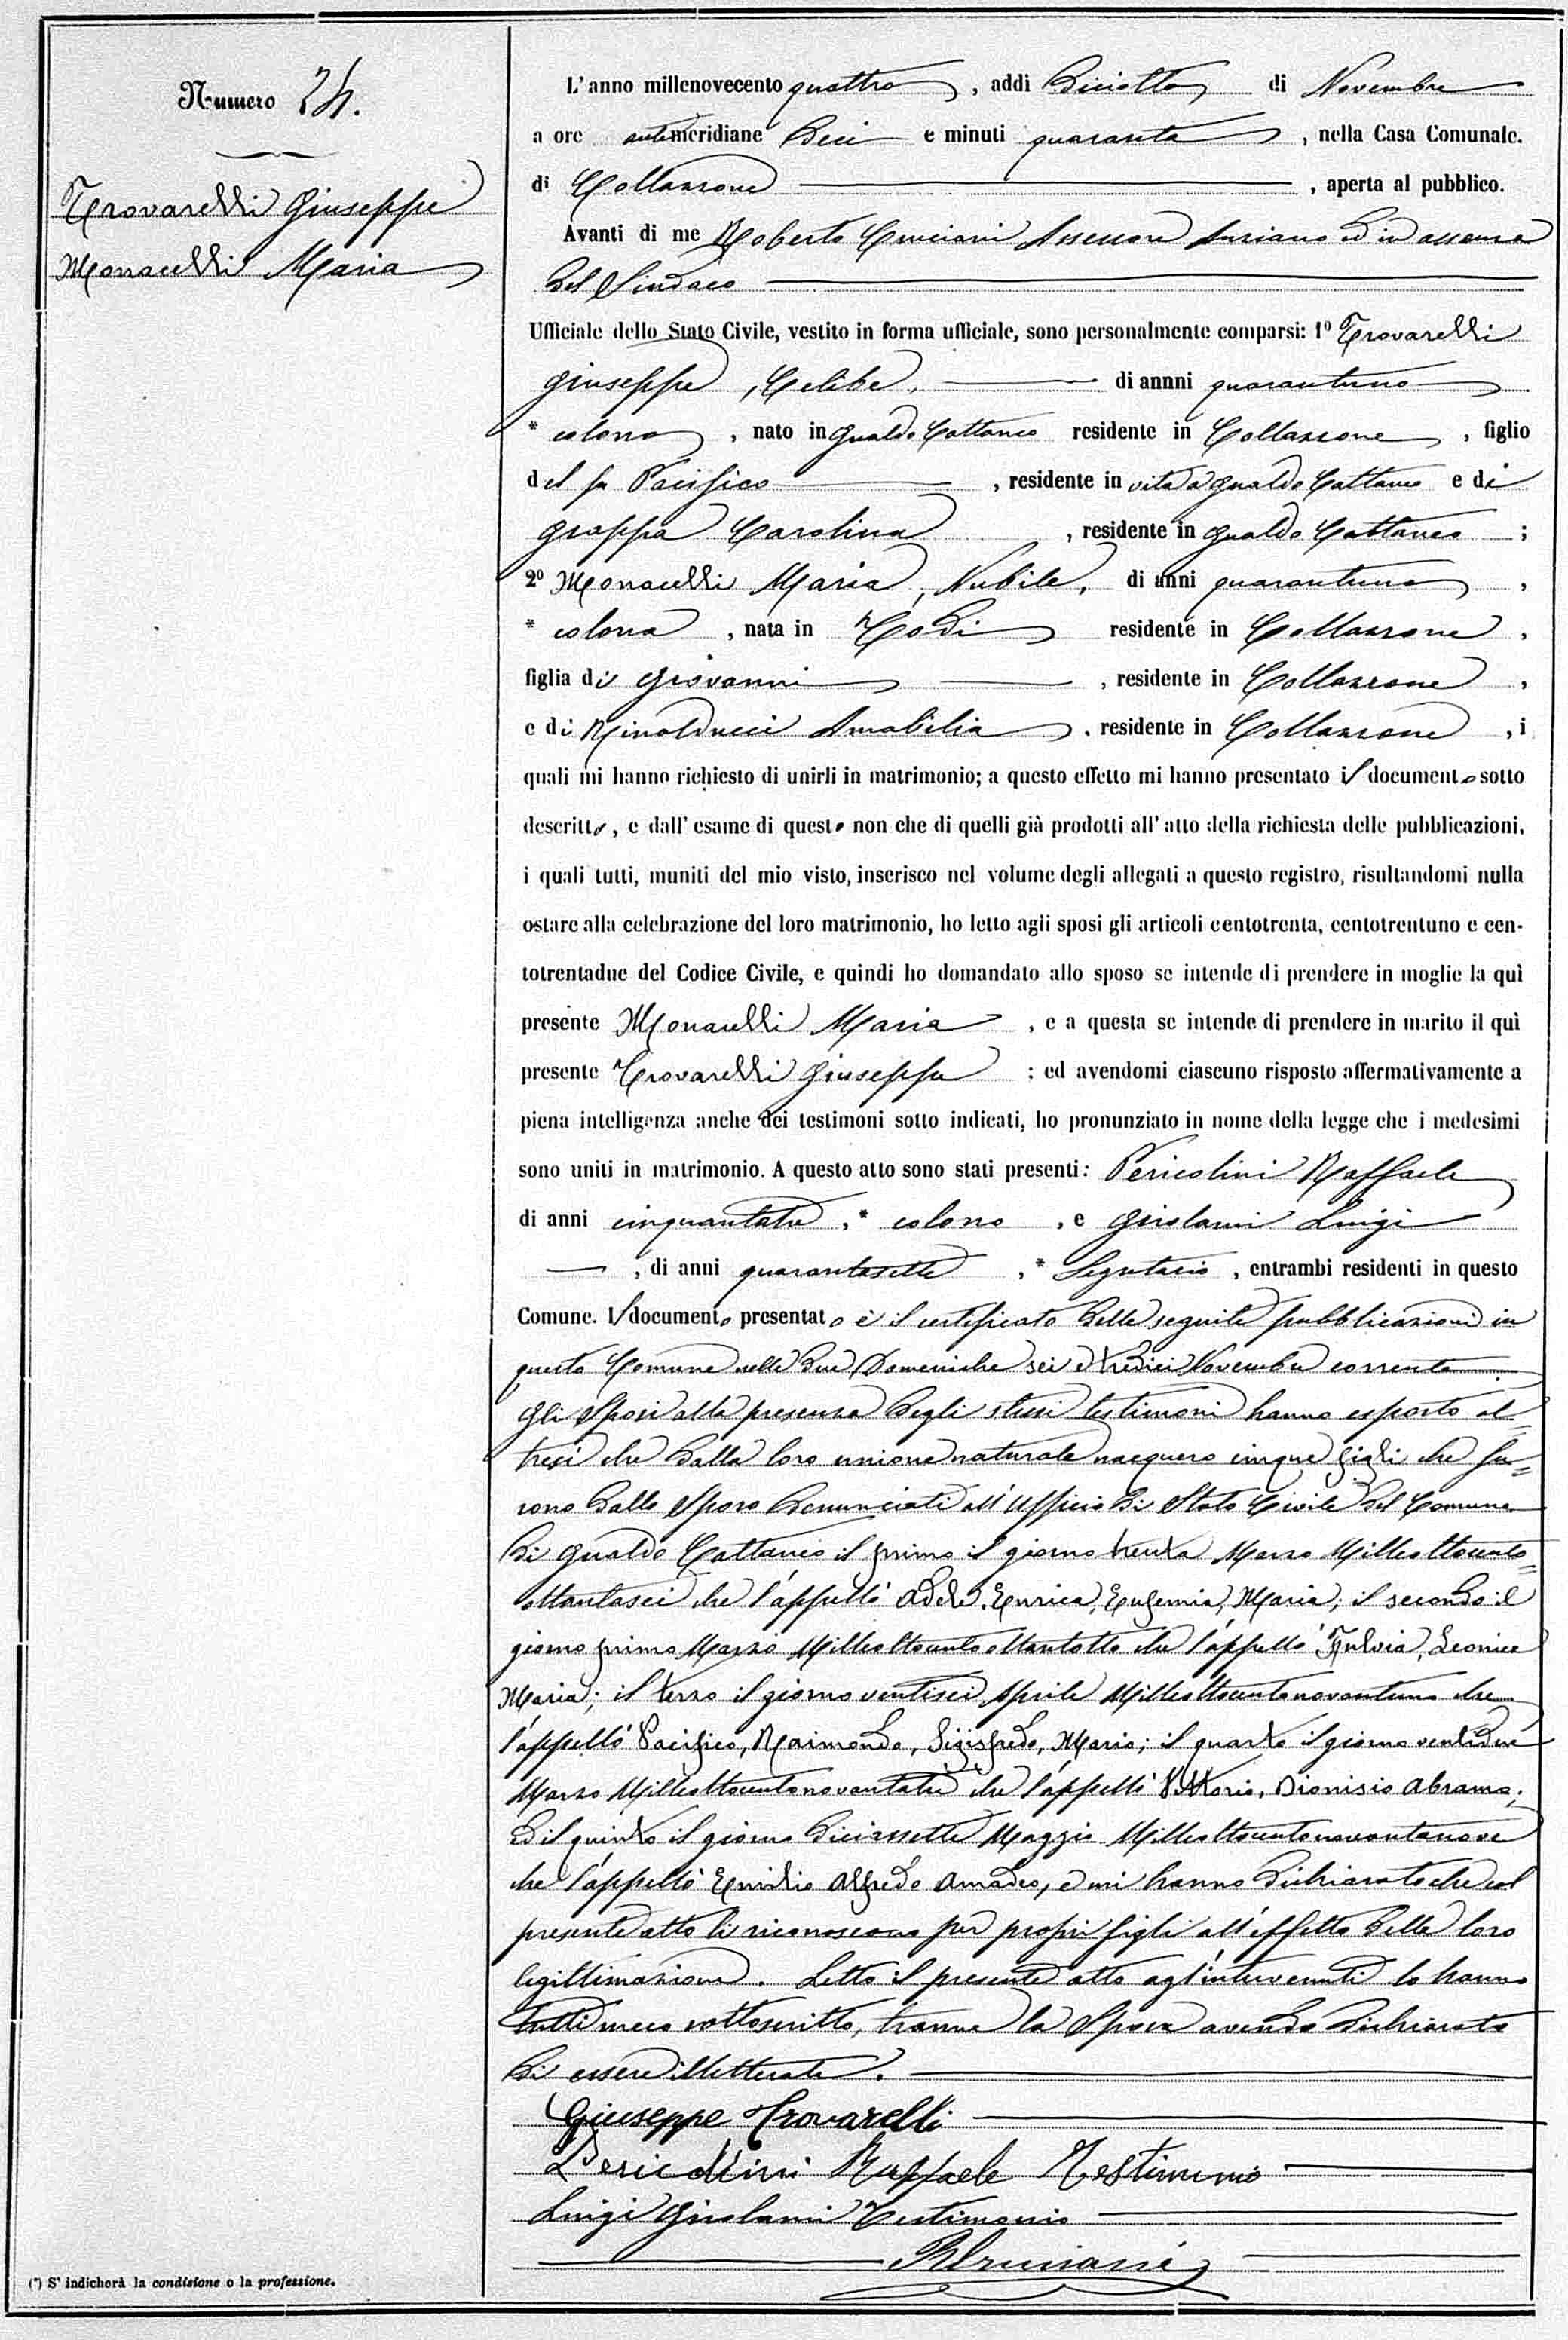 Numero 24.
Trovarelli Giuseppe
Monacelli Maria
L'anno millenovecento quattro, addì Diciotto di Novembre
a ore antimeridiane Dieci e minuti quaranta, nella Casa Comunale.
di Collazzone, aperta al pubblico.
Avanti di me Roberto Cruciani Assessore Anziano ed in assenza
del Sindaco
Ufficiale dello Stato Civile, vestito in forma ufficiale, sono personalmente comparsi: 1° Trovarelli
Giuseppe, Celibe, di annni quarantuno
* colono, nato in Gualdo Cattaneo residente in Collazzone, figlio
del fu Pacifico, residente in vita a Gualdo Cattaneo e di
Grappa Carolina, residente in Gualdo Cattaneo;
2° Monacelli Maria, Nubile, di anni quarantuno,
* colona, nata in Todi residente in Collazzone,
figlia di Giovanni, residente in Collazzone,
e di Rinalducci Amabilia, residente in Collazzone, i
quali mi hanno richiesto di unirli in matrimonio; a questo effetto mi hanno presentato il documento sotto
descritto, e dall' esame di questo non che di quelli già prodotti all' atto della richiesta delle pubblicazioni,
i quali tutti, muniti del mio visto, inserisco nel volume degli allegati a questo registro, risultandomi nulla
ostare alla celebrazione del loro matrimonio, ho letto agli sposi gli articoli centotrenta, centotrentuno e cen-
totrentadue del Codice Civile, e quindi ho domandato allo sposo se intende di prendere in moglie la quì
presente Monacelli Maria, e a questa se intende di prendere in marito il quì
presente Trovarelli Giuseppe: ed avendomi ciascuno risposto affermativamente a
piena intelligenza anche dei testimoni sotto indicati, ho pronunziato in nome della legge che i medesimi
sono uniti in matrimonio. A questo atto sono stati presenti: Pericolini Raffaele
di anni cinquantatre, * colono, e Girolami Luigi
, di anni quarantasette, * Segretario, entrambi residenti in questo
Comune. Il documento presentato è il certificato delle seguite pubblicazioni in
questo Comune nelle due Domeniche sei e tredici Novembre corrente.
Gli Sposi alla presenza degli stessi testimoni hanno esposto al=
tresì che dalla loro unione naturale nacquero cinque figli che fu=
rono dallo Sposo denunciati all'Ufficio di Stato Civile del Comune
di Gualdo Cattaneo il primo il giorno trenta Marzo Milleottocento=
ottantasei che l'appellò Adele, Enrica, Eufemia, Maria; il secondo il
giorno primo Marzo Milleottocentoottantotto che l'appellò Fulvia, Leonice
Maria; il terzo il giorno ventisei Aprile Milleottocentonovantuno che
l'appellò Pacifico, Raimondo, Sigisfredo, Mario; il quarto il giorno ventidue
Marzo Milleottocentonovantatrè che l'appellò Vittorio, Dionisio Abramo;
ed il quinto il giorno diciassette Maggio Milleottocentonovantanove
che l'appellò Emidio Alfredo Amadeo, e mi hanno dichiarato che col
presente atto li riconoscono per propri figli all'effetto della loro
legittimazione. Letto il presente atto agl'intervenuti lo hanno
tutti meco sottoscritto, tranne la Sposa avendo dichiarato
di essere illetterata.
Giuseppe Trovarelli
Pericolini Raffaele Testimonio
Luigi Girolami Testimonio
RCruciani
(*) S' indicherà la condizione o la professione.